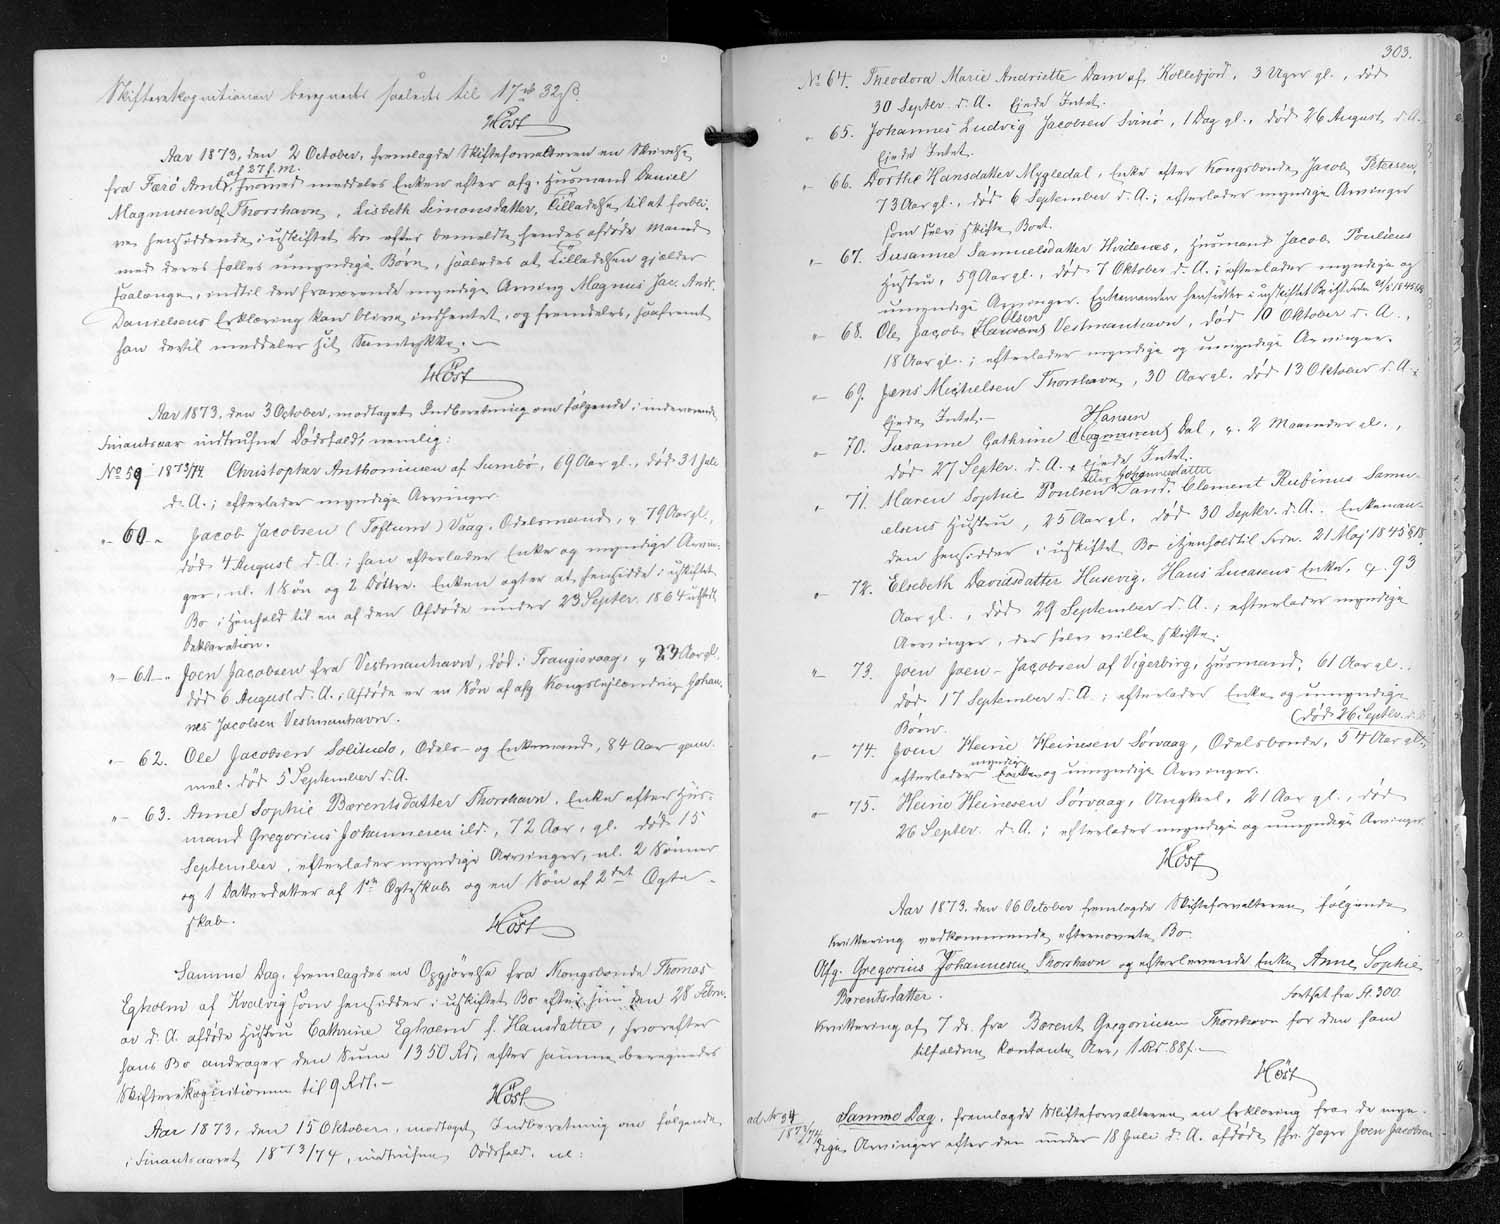 Skifterekognitionen beregnedes saaledes til 17 rd 32 ß.
Höst
Aar 1873, den 2 October, fremlagde Skifteforvalteren en Skrivelse
af 27 f. M.
fra Færö Amt, hvorved meddeles Enken efter afg. Huusmand Daniel
Magnussen af Thorshavn, Lisbeth Simonsdatter, Tilladelse til at forbli-
ve hensiddende i uskiftet Bo efter bemeldte hendes afdöde Mand
med deres fælles umyndige Börn, saaledes at Tilladelsen gjælder
saalænge, indtil den fraværende myndige Arving Magnus Jac. Andr.
Danielsens Erklæring kan blive indhentet, og fremdeles, saafremt
han dertil meddeler sit Samtykke.
Höst
Aar 1873, den 3 October, modtaget Indberetning om fölgende i inderværende
Finantsaar indtrufne Dödsfald, nemlig:
No 59 - 1873/74. Christopher Anthoniussen af Sumbö, 69 Aar gl., död 31 Juli
d. A.; efterlader myndige Arvinger.
" - 60 - " Jacob Jacobsen (Toftum) Vaag, Odelsmand, " 79 Aar gl.,
död 4 August d. A.; han efterlader Enke og myndige Arvin-
ger, nl. 1 Sön og 2 Döttre. Enken agter at hensidde i uskiftet
Bo i Henhold til en af den Afdöde under 23 Septbr. 1864 udstedt
Deklaration.
" - 61 - " Joen Jacobsen fra Vestmanhavn, död i Trangisvaag, " 23 Aar gl.
död 6 August d. A.; Afdöde er en Sön af afg. Kongslejlænding Johan-
nes Jacobsen Vestmanhavn.
" - 62. Ole Jacobsen Solitudo, Odels- og Enkemand, 84 Aar gam-
mel. död 5 September d. A.
" - 63. Anne Sophie Bærentsdatter Thorshavn, Enke efter Huus-
mand Gregorius Johannesen ibd., 72 Aar, gl. död 15
September, efterlader myndige Arvinger, nl. 2 Sönner
og 1 Datterdatter af 1ste Ægteskab og en Sön af 2det Ægte-
skab.
Höst
Samme Dag, fremlagdes en Opgjörelse fra Kongsbonde Thomas
Egholm af Kvalvig som hensidder i uskiftet Bo efter sin den 28 Febru-
ar d. A. afdöde Hustru Cathrine Egholm f. Hansdatter, hvorefter
hans Bo andrager den Sum 1350 Rd, efter hvilken beregnedes
Skifterekognitionen til 9 Rdl. -
Höst
Aar 1873, den 15 Oktober, modtaget Indberetning om fölgende,
i Finantsaaret 1873/74, indtrufne Dödsfald, nl:
303.
No 64. Theodora Marie Andriette Dam af Kollefjord, 3 Uger gl., död
30 Septbr. d. A. Ejede Intet.
" - 65. Johannes Ludvig Jacobsen Svinö, 1 Dag gl., död 26 August d. A.
Ejede Intet.
" - 66. Dorthe Hansdatter Mygledal, Enke efter Kongsbonde Jacob Petersen,
73 Aar gl., död 6 September d. A.; efterlader myndige Arvinger
som selv skifte Boet.
" - 67. Susanne Samuelsdatter Hvidenæs, Huusmand Jacob Poulsens
Hustru, 59 Aar gl., död 7 Oktober d. A.; efterlader myndige og
umyndige Arvinger. Enkemanden hensidder i uskiftet Bo ifl. Frdn. 21/5 1845 § 18
Olsen
" - 68. Ole Jacob Hansen Vestmanhavn, död 10 Oktober d. A.,
18 Aar gl.; efterlader myndige og umyndige Arvinger.
" - 69. Jens Michelsen Thorshavn, 30 Aar gl. död 13 Oktober d. A.
Ejede Intet. -
Hansen
" - 70. Susanne Cathrine Magnussen Dal, c. 2 Maaneder gl.,
död 27 Septbr. d. A. Ejede Intet.
eller Johannesdatter
" - 71. Maren Sophie Poulsen Sand. Clement Rubinus Samu-
elsens Hustru, 25 Aar gl. död 30 Septbr. d. A. Enkeman-
den hensidder i uskiftet Bo i Henhold til Frdn. 21 Maj 1845 § 18
" - 72. Elsebeth Davidsdatter Husevig, Hans Lucasens Enke, c. 93
Aar gl., död 29 September d. A.; efterlader myndige
Arvinger, der selv ville skifte.
" - 73. Joen Joen-Jacobsen af Vigerbirg, Huusmand, 61 Aar gl.,
död 17 September d. A.; efterlader Enke og umyndige
Börn.
(död 26 Septbr. d. A.
" - 74. Joen Heine Heinesen Sörvaag, Odelsbonde, 54 Aar gl.;
myndige
efterlader Enke og umyndige Arvinger.
" - 75. Heine Heinesen Sörvaag, Ungkarl, 21 Aar gl., död
26 Septbr. d. A.; efterlader myndige og umyndige Arvinger.
Höst
Aar 1873, den 16 October fremlagde Skifteforvalteren fölgende
Kvittering vedkommende efternævnte Bo.
Afg. Gregorius Johannesen, Thorshavn og efterlevende Enke Anne Sophie
Bærentsdatter. fortsat fra Fl. 300.
Kvittering af 7 ds. fra Bærent Gregoriussen Thorshavn for den ham
tilfaldne kontante Arv, 1 Rd. 88 ß. -
Höst
ad No 54 Samme Dag, fremlagde Skifteforvalteren en Erklæring fra de myn-
1873/74. dige Arvinger efter den under 18 Juli d. A. afdöde fhv. Jæger Joen Jacobsen